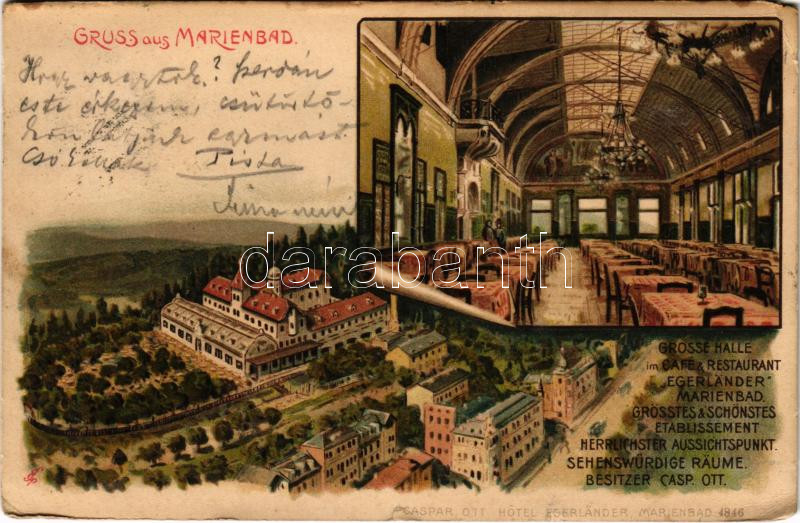 GRUSS AUS MARIENBAD.
Hogy vagytok? Szerdán
este érkezem, csütörtö-
kön egymást
Csókollak Pista
néni
darabanth
GROSSE HALLE
im CAFÉ & RESTAURANT
"EGERLÄNDER"
MARIENBAD.
GRÖSSTES & SCHÖNSTES
ETABLISSEMENT
HERRLICHSTER AUSSICHTSPUNKT.
SEHENSWÜRDIGE RÄUME.
BESITZER CASP. OTT.
CASPAR OTT HÔTEL EGERLÄNDER, MARIENBAD 1846